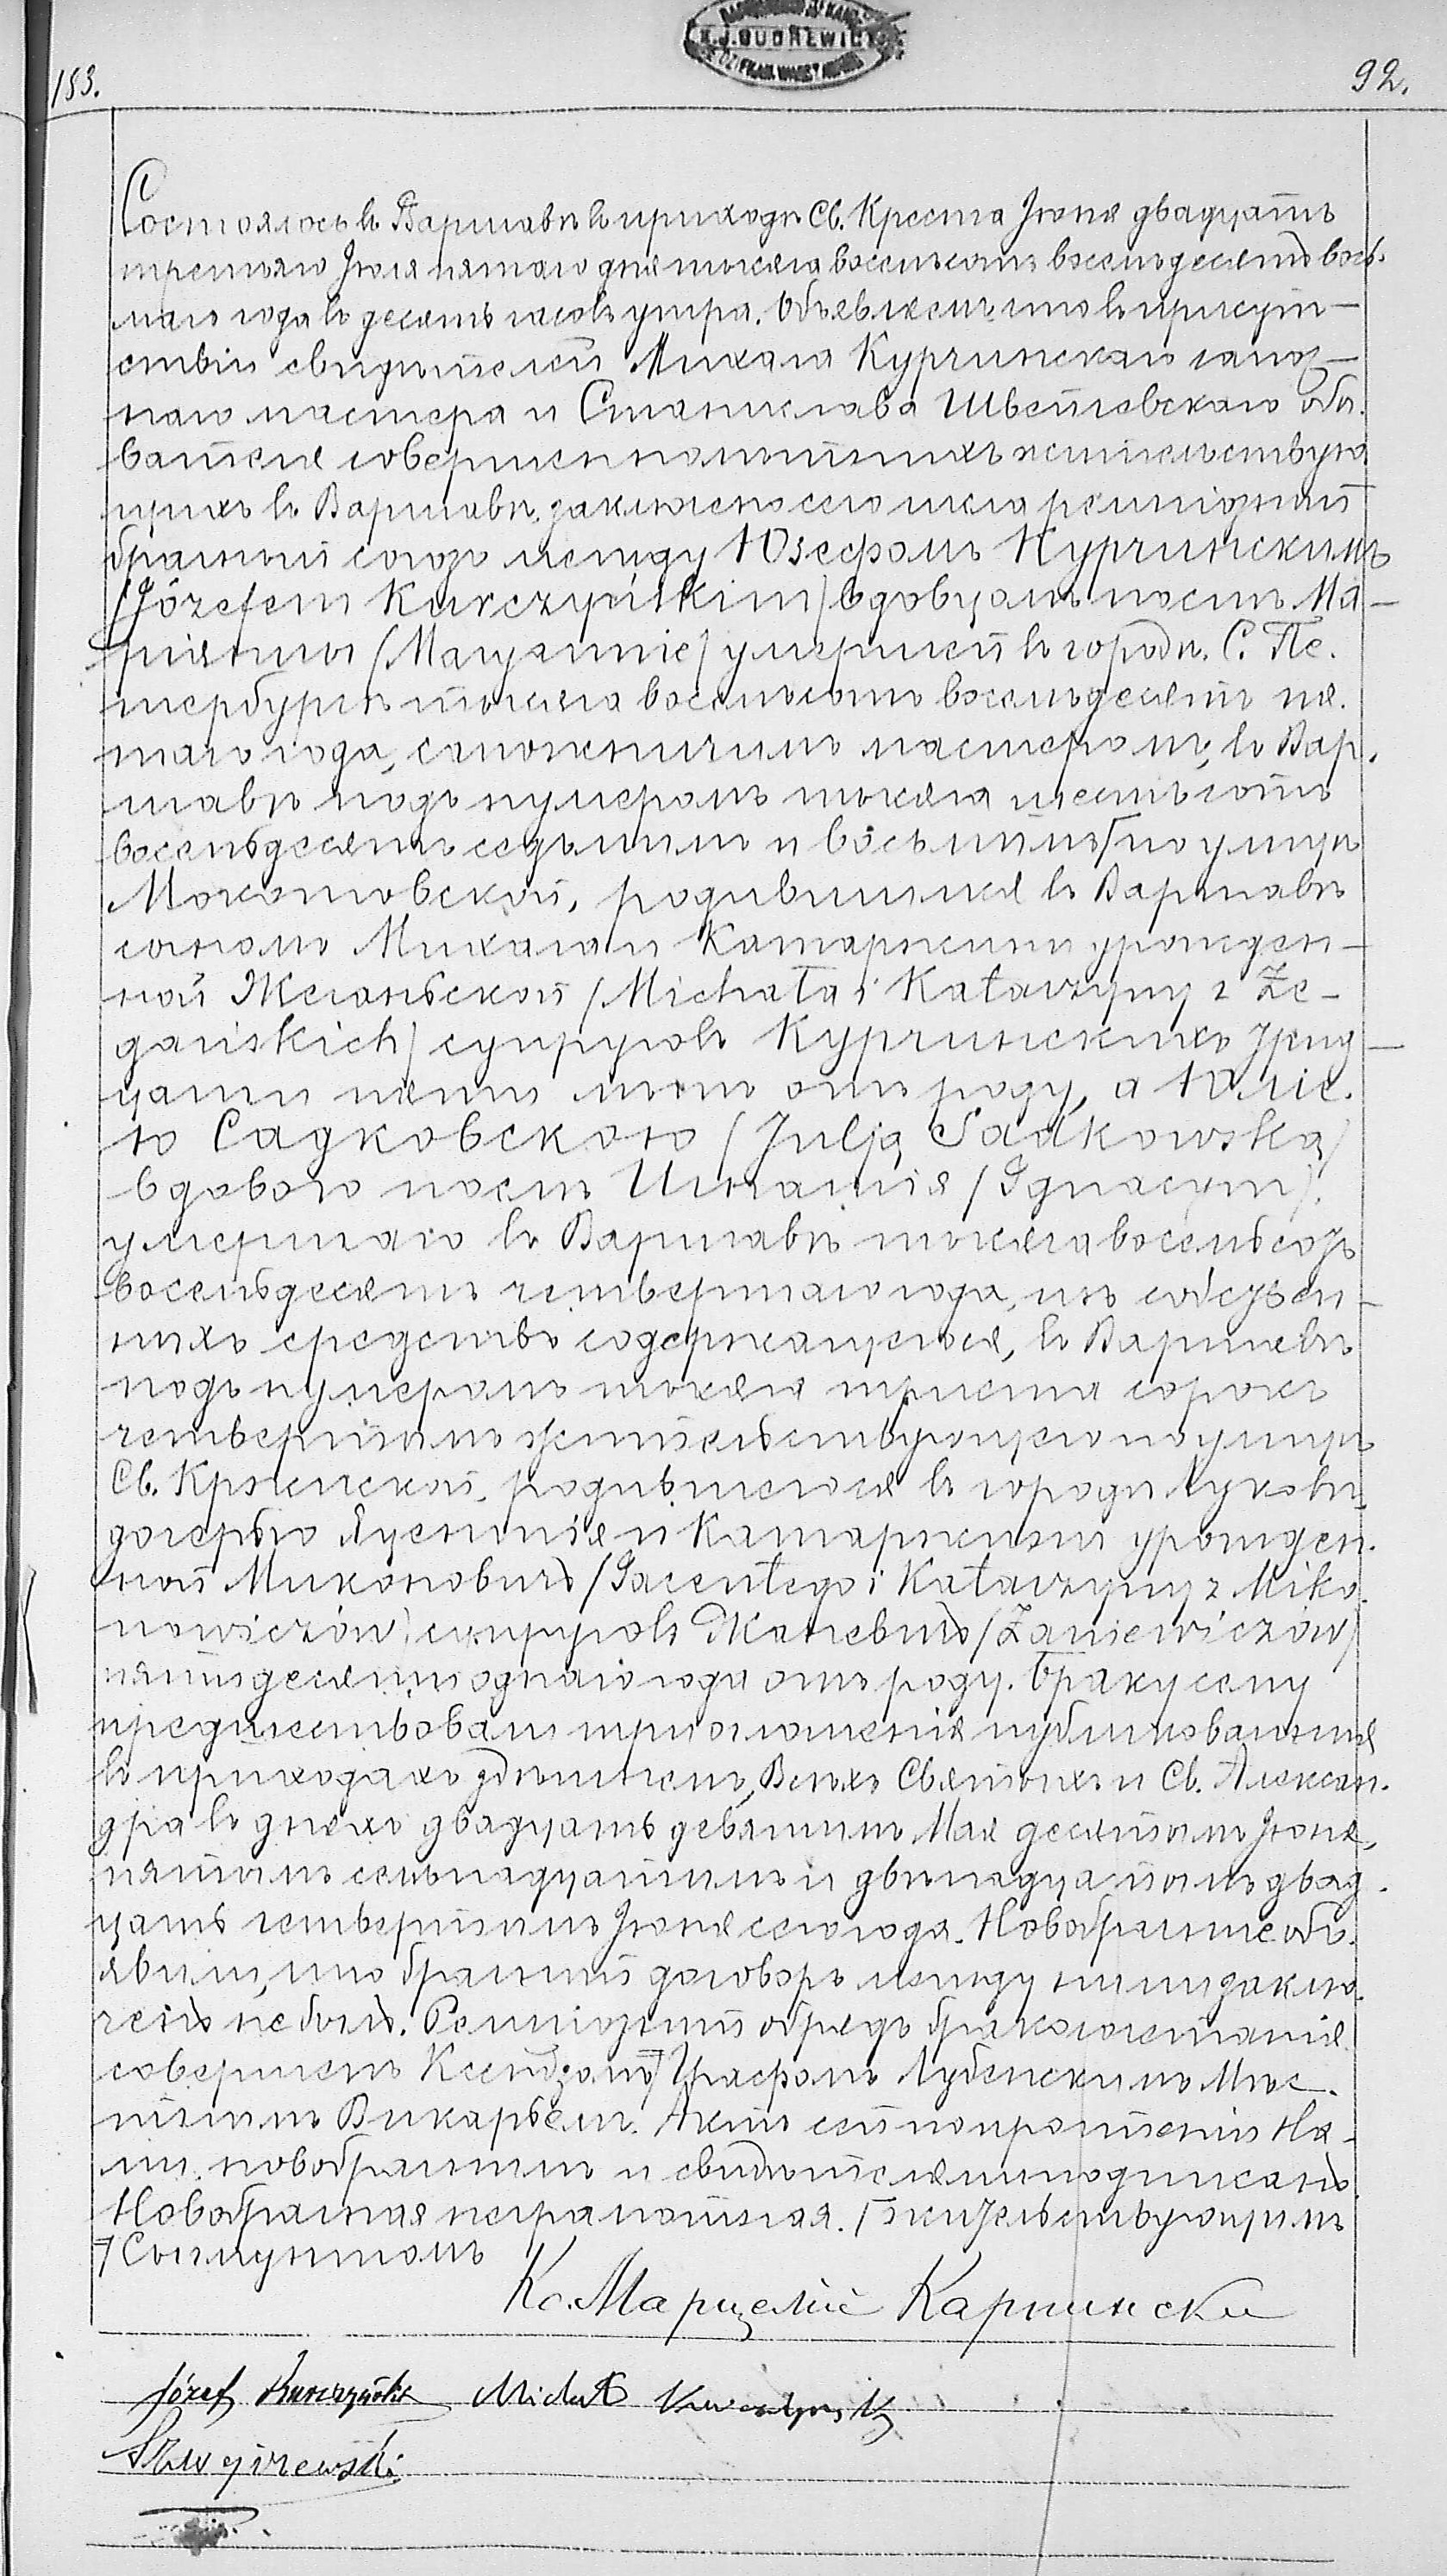 K.J. GUDREWICZ
153.
92.
Состоялось въ Варшавѣ въ приходѣ Св. Креста Іюня двадцать
третьяго Іюля пятаго дня тысяча восемьсотъ восемьдесятъ вось.
маго года въ десять часовъ утра. Объявляемъ, что въ присут–
ствіи свидѣтелей Михала Курчинскаго сапож–
наго мастера и Станислава Швейчевскаго обы.
вателя совершеннолѣтнихъ жительствую
щихъ въ Варшавѣ, заключенъ сего числа религіозный
брачный союзъ между Юзефомъ Курчинскимъ
/Józefem Kurczyńskim/ вдовцемъ послѣ Ма–
ріянны /Maryannie/ умершей въ городѣ С. Пе.
тербургѣ тысяча восемьсотъ восемьдесятъ пя.
таго года, сапожничимъ мастеромъ, въ Вар.
шавѣ подъ нумеромъ тысяча шестьсотъ
восемьдесятъ седьмымъ и восьмымъ Г по улицѣ
Мокотовской, родившимся въ Варшавѣ
сыномъ Михала и Катаржины урожден–
ной Жеганьской /Michała i Katarzyny z Że–
gańskich/ супруговъ Курчинскихъ трид–
цати пяти лѣтъ отъ роду, а Юліе.
ю Садковскою /Julją Sadkowską/
вдовою послѣ Игнатія /Ignacym/.
умершаго въ Варшавѣ тысяча восемьсотъ
восемьдесятъ четвертаго года, изъ собствен–
ныхъ средствъ содержащеюся, въ Варшавѣ
подъ нумеромъ тысяча триста сорокъ
четвертымъ жительствующею по улицѣ
Св. Кржиской, родившеюся въ городѣ Луковѣ,
дочерью Яцентія и Катаржины урожден.
ной Миконовичъ /Jacentego i Katarzyny z Miko
nowiczów/ супруговъ Жаневичъ /Żaniewiczów/
пятидесяти однаго года отъ роду. Браку сему
предшествовали три оглашенія публикованныя
въ приходахъ здѣшнемъ, Всѣхъ Святыхъ и Св. Алексан.
дра въ дняхъ двадцать девятымъ Мая десятомъ Іюня,
пятомъ семьнадцатымъ и двѣнадцатомъ двад.
цать четвертымъ Іюня сего года. Новобрачные объ.
явили, что брачный договоръ между ними заклю.
ченъ не былъ. Религіозный обрядъ бракосочетанія
совершенъ Ксендзомъ ⁊ Графомъ Лубенскимъ Мѣс.
тнымъ Викарьемъ. Актъ сей по прочтеніи На–
ми, новобрачнымъ и свидѣтелями подписанъ.
Новобрачная неграмотная. Г жительствующимъ
⁊ Согмунтомъ
Кс. Марцелій Карпински
Józef Kurczyński Michał Kurczyński
Szwejczewski